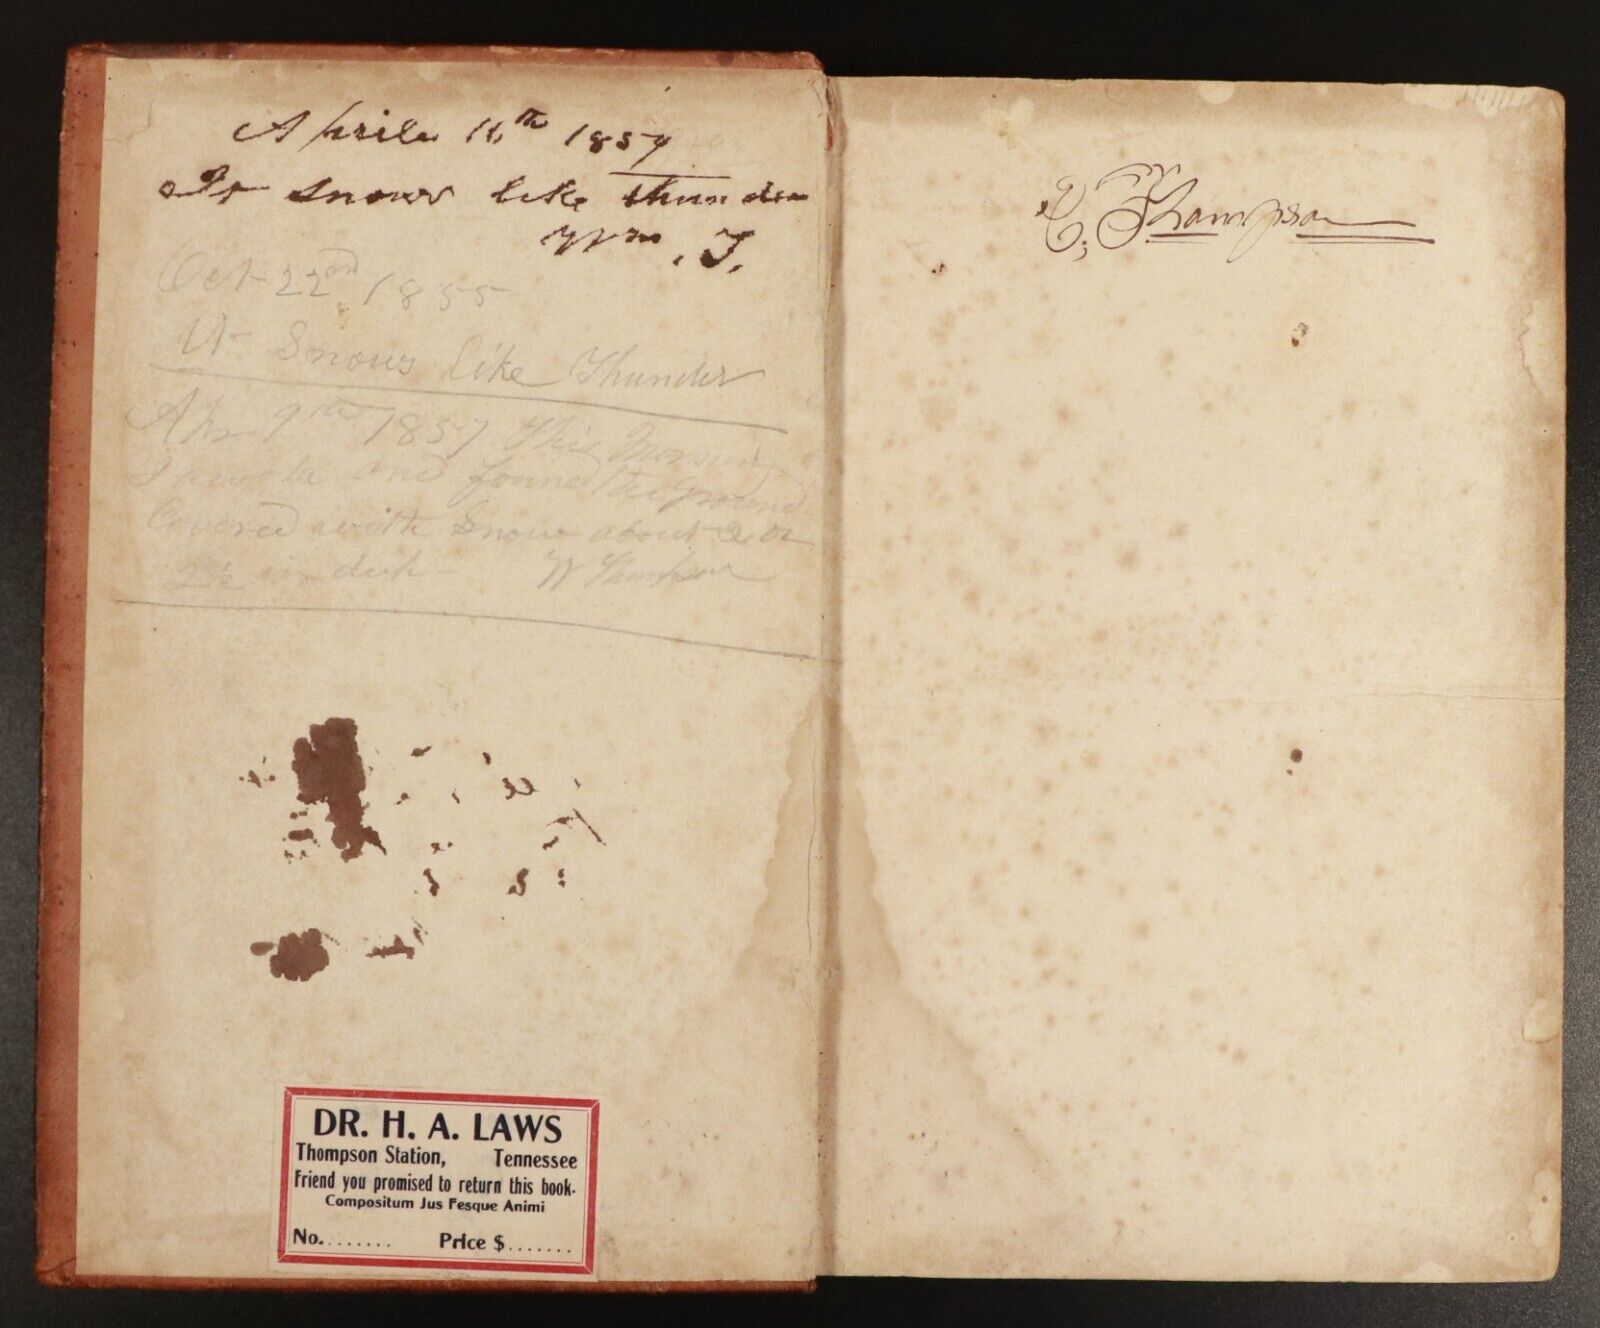 Aprile 16th 1857
It snows like thunder
Wm. T.
Oct 22nd 1855
It Snows like Thunder
Apr 9th 1857 This Morning
I awoke and found the ground
Covered with Snow about 2 or
2½ in deep W Thompson
DR. H. A. LAWS
Thompson Station, Tennessee
Friend you promised to return this book.
Compositum Jus Fesque Animi
No........ Price $.......
E. Thompson